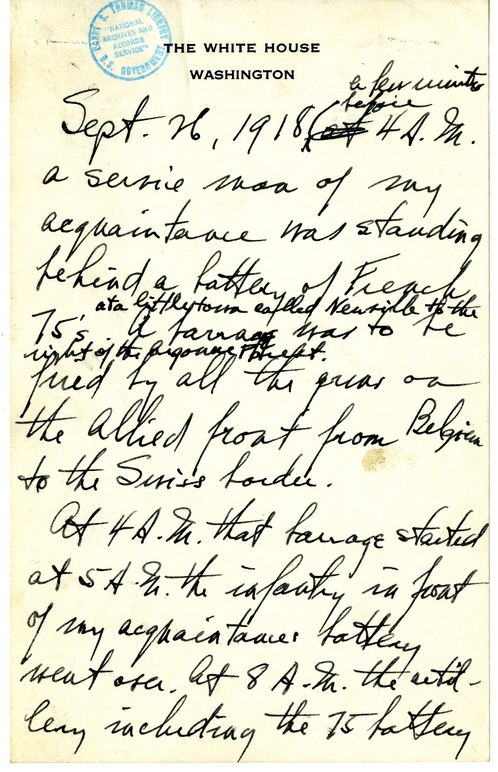 HARRY S. TRUMAN LIBRARY
"NATIONAL
ARCHIVES AND
RECORDS
SERVICE"
U.S. GOVERNMENT
THE WHITE HOUSE
WASHINGTON
a few minutes
before
Sept. 26, 1918, (at 4 A.M.
a service man of my
acquaintance was standing
behind a battery of French
at a little town called Neuville to the
75's. A barrage was to be
right of the Argonne Forest.
fired by all the guns on
the Allied front from Belgium
to the Swiss border.
At 4 A.M. that barrage started
at 5 A.M. the infantry in front
of my acquaintances battery
went over. At 8 A.M. the artil-
lery including the 75 battery